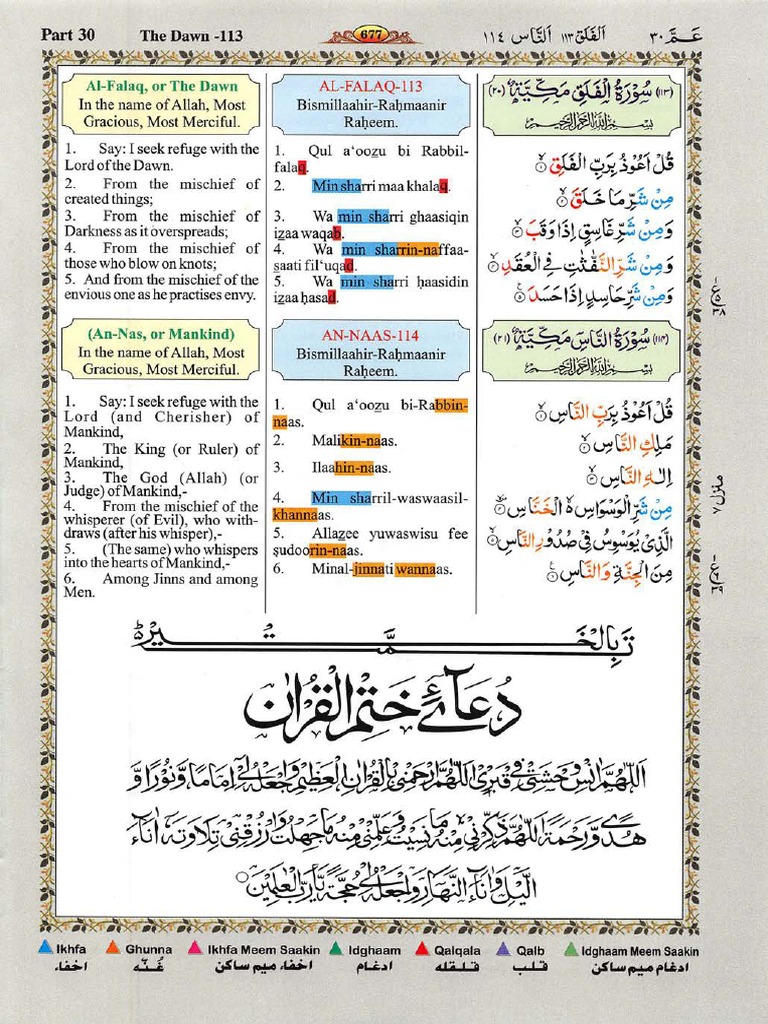 Part 30 The Dawn -113 677 اَلْفَلَق ١١٣ اَلنَّاس ١١٤ عَمَّ ٣٠
Al-Falaq, or The Dawn
In the name of Allah, Most
Gracious, Most Merciful.
1. Say: I seek refuge with the
Lord of the Dawn.
2. From the mischief of
created things;
3. From the mischief of
Darkness as it overspreads;
4. From the mischief of
those who blow on knots;
5. And from the mischief of the
envious one as he practises envy.
AL-FALAQ-113
Bismillaahir-Raḥmaanir
Raḥeem.
1. Qul a‘oozu bi Rabbil-
falaq.
2. Min sharri maa khalaq.
3. Wa min sharri ghaasiqin
izaa waqab.
4. Wa min sharrin-naffaa-
saati fil‘uqad.
5. Wa min sharri ḥaasidin
izaa ḥasad.
(١١٣) سُوْرَةُ الْفَلَقِ مَكِّيَّةٌ (٢٠)
بِسْمِ اللهِ الرَّحْمٰنِ الرَّحِيْمِ
قُلْ اَعُوْذُ بِرَبِّ الْفَلَقِ ۙ١
مِنْ شَرِّ مَا خَلَقَ ۙ٢
وَمِنْ شَرِّ غَاسِقٍ اِذَا وَقَبَ ۙ٣
وَمِنْ شَرِّ النَّفّٰثٰتِ فِي الْعُقَدِ ۙ٤
وَمِنْ شَرِّ حَاسِدٍ اِذَا حَسَدَ ٥
(An-Nas, or Mankind)
In the name of Allah, Most
Gracious, Most Merciful.
1. Say: I seek refuge with the
Lord (and Cherisher) of
Mankind,
2. The King (or Ruler) of
Mankind,
3. The God (Allah) (or
Judge) of Mankind,-
4. From the mischief of the
whisperer (of Evil), who with-
draws (after his whisper),-
5. (The same) who whispers
into the hearts of Mankind,-
6. Among Jinns and among
Men.
AN-NAAS-114
Bismillaahir-Raḥmaanir
Raḥeem.
1. Qul a‘oozu bi-Rabbin-
naas.
2. Malikin-naas.
3. Ilaahin-naas.
4. Min sharril-waswaasil-
khannaas.
5. Allazee yuwaswisu fee
ṣudoorin-naas.
6. Minal-jinnati wannaas.
(١١٤) سُوْرَةُ النَّاسِ مَكِّيَّةٌ (٢١)
بِسْمِ اللهِ الرَّحْمٰنِ الرَّحِيْمِ
قُلْ اَعُوْذُ بِرَبِّ النَّاسِ ۙ١
مَلِكِ النَّاسِ ۙ٢
اِلٰهِ النَّاسِ ۙ٣
مِنْ شَرِّ الْوَسْوَاسِ ۙ الْخَنَّاسِ ۙ٤
الَّذِيْ يُوَسْوِسُ فِيْ صُدُوْرِ النَّاسِ ۙ٥
مِنَ الْجِنَّةِ وَالنَّاسِ ٦
منزل ٧
تَمَّتْ بِالْخَيْرِ
دُعَآئے خَتْمِ الْقُرْاٰن
اَللّٰهُمَّ اٰنِسْ وَحْشَتِيْ فِيْ قَبْرِيْ اَللّٰهُمَّ ارْحَمْنِيْ بِالْقُرْاٰنِ الْعَظِيْمِ وَاجْعَلْهُ لِيْ اِمَامًا وَّنُوْرًا وَّ
هُدًى وَّرَحْمَةً اَللّٰهُمَّ ذَكِّرْنِيْ مِنْهُ مَا نَسِيْتُ وَعَلِّمْنِيْ مِنْهُ مَا جَهِلْتُ وَارْزُقْنِيْ تِلَاوَتَهٗ اٰنَآءَ
الَّيْلِ وَاٰنَآءَ النَّهَارِ وَاجْعَلْهُ لِيْ حُجَّةً يَّا رَبَّ الْعٰلَمِيْنَ
Ikhfa Ghunna Ikhfa Meem Saakin Idghaam Qalqala Qalb Idghaam Meem Saakin
اخفاء غُنّه اخفاء ميم ساكن ادغام قلقله قلب ادغام ميم ساكن